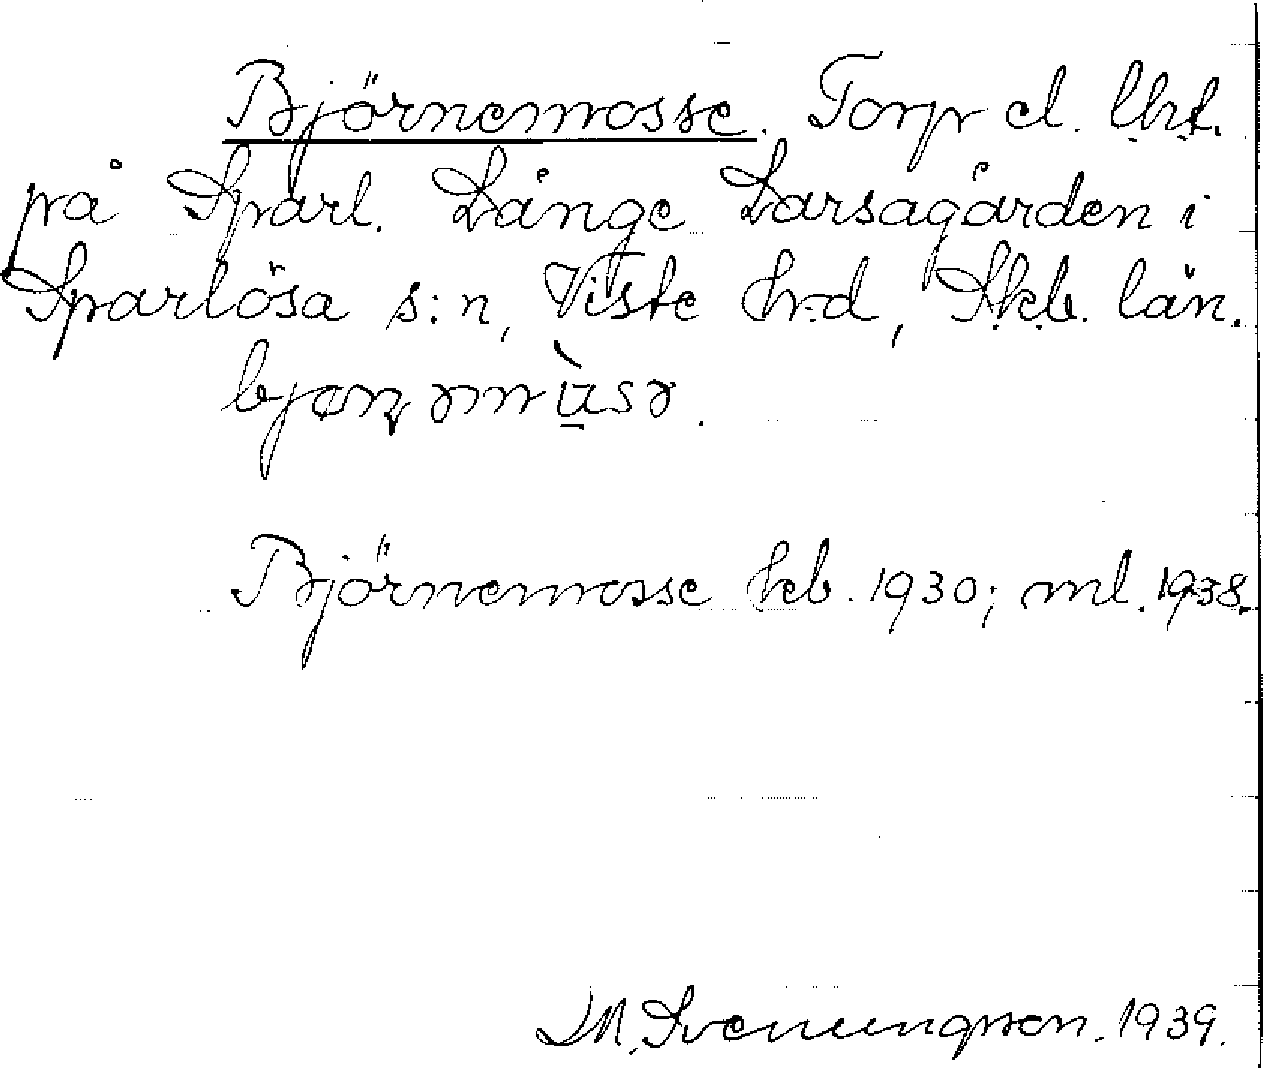 Björnemosse. Torp el. lht.
på Sparl. Långe Larsagården i
Sparlösa s:n, Viste hrd, Skb. län.
Björnemosse kb. 1930; ml. 1938.
S M. Svenungsson. 1939.